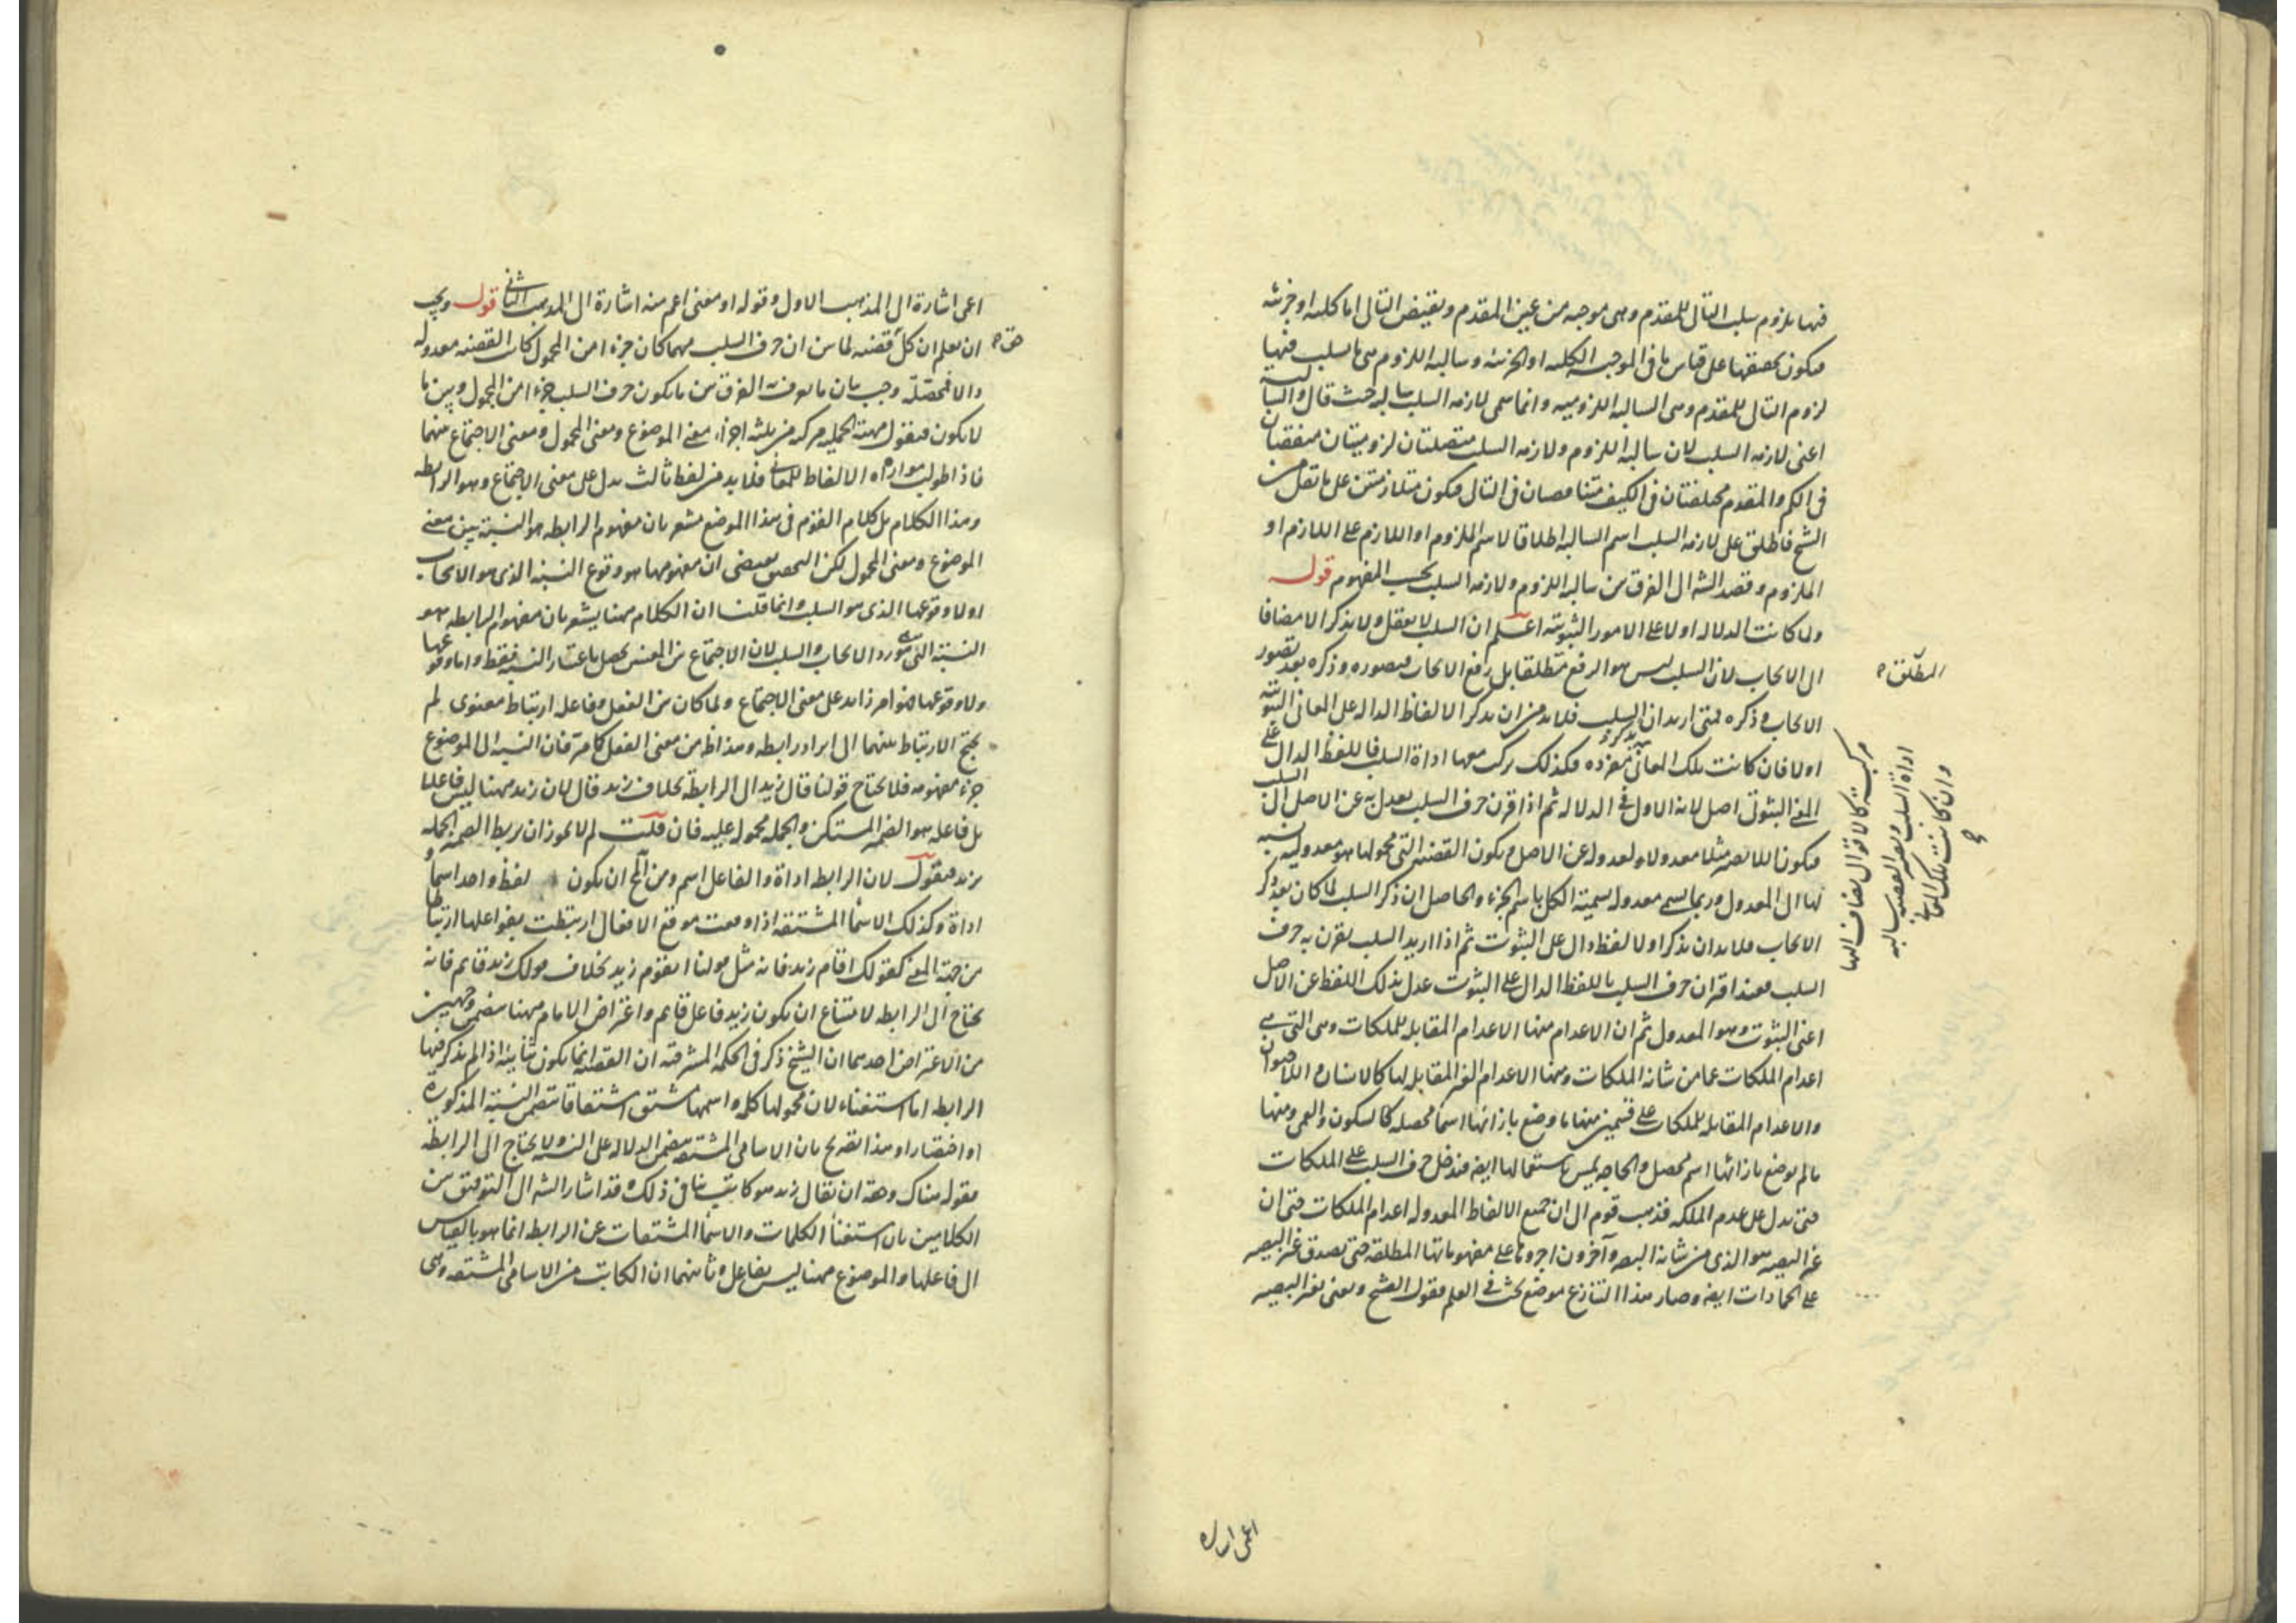 فيها بلزوم سلب التالى للمقدم وهى موجبه من عين المقدم ونقيض التالى اما كليه او جزئيه
فيكون تحققها على قياس ما فى الموجبه الكليه او الجزئيه وسالبه اللزوم هى ما يسلب فيها
لزوم التالى للمقدم وهى السالبه اللزوميه وانما سمى لازمه السلب سالبه حيث قال والسالبة
اعنى لازمه السلب لان سالبه اللزوم ولازمه السلب متصلتان لزوميتان متفقتان
فى الكم والمقدم مختلفتان فى الكيف متناقضتان فى التالى فيكون متلازمتين على ما نقل من
الشيخ فاطلق على لازمه السلب اسم السالبه اطلاقا لاسم الملزوم او اللازم على اللازم او
الملزوم وقصد الشه الى الفرق بين سالبه اللزوم ولازمه السلب بحسب المفهوم قوله
ولما كانت الدلاله اولا على الامور الثبوتيه اعلم ان السلب لا يعقل ولا يذكر الا مضافا
الى الايجاب لان السلب ليس هو الرفع مطلقا بل رفع الايجاب فتصوره وذكره بعد تصور
المطلق ه
الايجاب وذكره فمتى اريد ان يذكر السلب فلا بد من ان يذكر الالفاظ الداله على المعانى الثبوتيه
اولا فان كانت تلك المعانى مفرده فكذلك يركب معها اداة السلب فاللفظ الدال على
وان كانت تلك المعانى
مركبة كالاقوال يضاف اليها
اداة السلب ويصير القضيه سالبه
المعنى الثبوتى اصل لانه الاول فى الدلاله ثم اذا قرن حرف السلب يعدل به عن الاصل الى السلب
فيكون اللابصير مثلا معدولا ولعدوله عن الاصل ويكون القضيه التى محمولها هو معدوليه نسبه
لها الى المعدول وربما يسمى معدوله تسمية الكل باسم الجزء والحاصل ان ذكر السلب لما كان بعد ذكر
الايجاب فلا بد ان يذكر اولا لفظ دال على الثبوت ثم اذا اريد السلب يقرن به حرف
السلب فعند اقتران حرف السلب باللفظ الدال على الثبوت عدل بذلك اللفظ عن الاصل
اعنى الثبوت وهو المعدول ثم ان الاعدام منها الاعدام المقابله للملكات وهى التى هى
اعدام الملكات عما من شانه الملكات ومنها الاعدام الغير المقابله لها كالانسان واللاحيوان
والاعدام المقابله للملكات على قسمين منها ما وضع بازائها اسما محصله كالسكون والعمى ومنها
ما لم يوضع بازائها اسم محصل والحاجه يمس باستعمالها ايضه فدخل حرف السلب على الملكات
حتى يدل على عدم الملكه فذهب قوم الى ان جميع الالفاظ المعدوله اعدام الملكات حتى ان
غير البصير هو الذى من شانه البصر وآخرون اجروها على مفهوماتها المطلقه حتى يصدق غير البصير
على الجمادات ايضه وصار هذا التنازع موضع بحث فى العلم فقول الشيخ ويعنى بغير البصير
اعمى اشاره
اعمى اشارة الى المذهب الاول وقوله او معنى اعم منه اشارة الى المذهب الثانى قوله ويجب
ان يعلم ان كل قضيه لما بين ان حرف السلب مهما كان جزءا من المحمول كانت القضيه معدوله
والا فمحصلة وجب بيان ما يعرف به الفرق بين ما يكون حرف السلب جزءا من المحمول وبين ما
لا يكون فيقول مهية الحمليه مركبه من ثلثه اجزاء معنى الموضوع ومعنى المحمول ومعنى الاجتماع بينهما
فاذا طولب موازاه الالفاظ للمعانى فلا بد من لفظ ثالث يدل على معنى الاجتماع وهو الرابطه
وهذا الكلام بل كلام القوم فى هذا الموضع مشعر بان مفهوم الرابطه هو النسبة بين معنى
الموضوع ومعنى المحمول لكن التحقيق يقتضى ان مفهومها هو وقوع النسبه الذى هو الايجاب
او لا وقوعها الذى هو السلب وانما قلنا ان الكلام هنا يشعر بان مفهوم الرابطه هو
النسبه التى هى مورد الايجاب والسلب لان الاجتماع بين المعنيين يحصل باعتبار النسبه فقط واما وقوعها
ولا وقوعها فهو امر زايد على معنى الاجتماع ولما كان بين الفعل وفاعله ارتباط معنوى لم
يحتج الارتباط بينهما الى ايراد رابطه وهذا ظ من معنى الفعل كما مر فان النسبه الى الموضوع
جزء مفهومه فلا يحتاج قولنا قال زيد الى الرابطة بخلاف زيد قال لان زيد ههنا ليس فاعلا
بل فاعله هو الضمير المستكن والجمله محموله عليه فان قلت لم لا يجوز ان يربط الضمير الجمله
بزيد فيقول لان الرابطه اداة والفاعل اسم ومن المح ان يكون لفظ واحد اسما و
اداة وكذلك الاسماء المشتقه اذا وقعت موقع الافعال ارتبطت بفواعلها ارتباطا
من جهة المعنى كقولك اقام زيد فانه مثل قولنا ايقوم زيد بخلاف قولك زيد قائم فانه
يحتاج الى الرابطه لامتناع ان يكون زيد فاعل قائم واعتراض الامام ههنا متضمن وجهين
من الاعتراض احدهما ان الشيخ ذكر فى الحكمه المشرقيه ان القضيه انما يكون ثنائيه اذا لم يذكر فيها
الرابطه اما استغناء لان محمولها كلمه او اسم مشتق اشتقاقا يتضمن النسبة المذكوره
او اختصارا وهذا تصريح بان الاسامى المشتقه متضمن الدلاله على النسبه ولا يحتاج الى الرابطه
فقوله هناك وحقه ان يقال زيد هو كاتب ينافى ذلك وقد اشار الشه الى التوفيق بين
الكلامين بان استغناء الكلمات والاسماء المشتقات عن الرابطه انما هو بالقياس
الى فاعلها والموضوع ههنا ليس بفاعل وثانيهما ان الكاتب من الاسامى المشتقه وهى